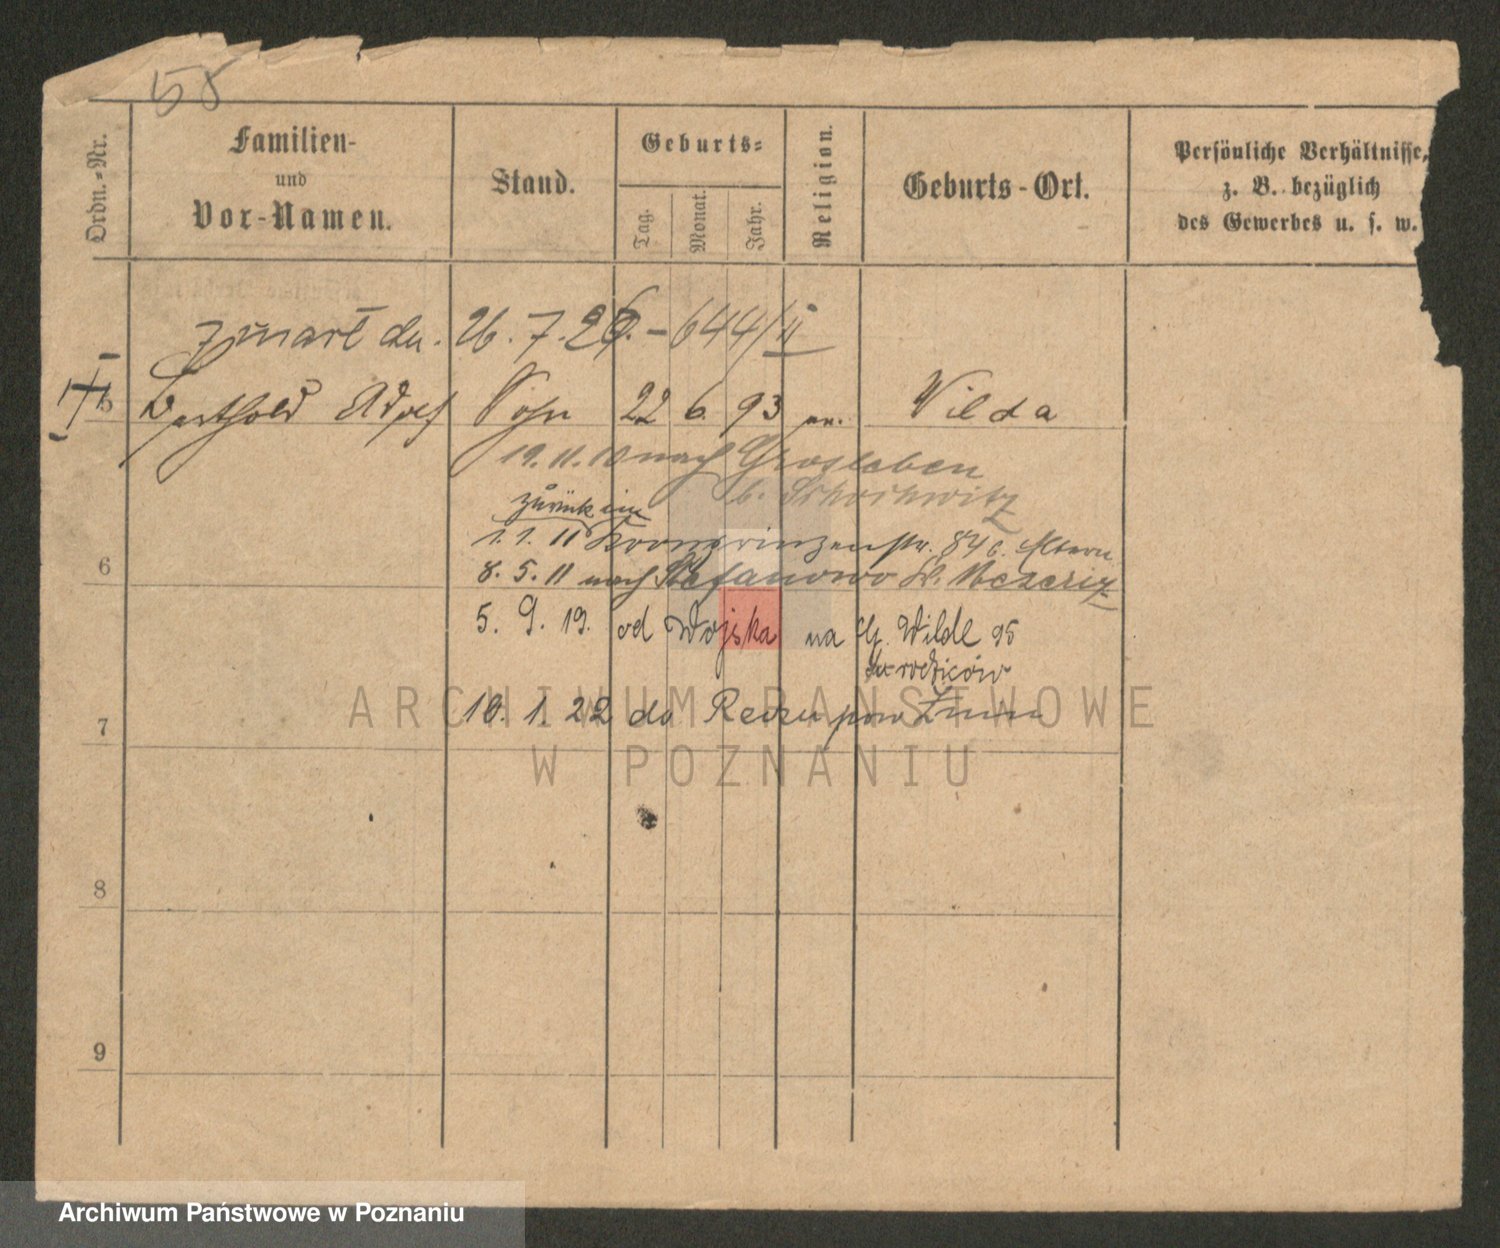 58
Ordn.-Nr.
Familien-
und
Vor-Namen.
Stand.
Geburts-
Tag.
Monat.
Jahr.
Religion.
Geburts-Ort.
Persönliche Verhältnisse,
z. B. bezüglich
des Gewerbes u. s. w.
zmarł dn. 26. 7. 26. - 644/II
5 Berthold Adolf Sohn 22 6. 93 ev. Wilda
19. 11. 10 nach
b.
zurück in
1. 1. 11 Kronprinzenstr. 84 b. Eltern
6
8. 5. 11 nach Stefanowo Kr. Meseritz
5. 9. 19. od Wojska na G. Wilde 95
rodziców
7
10. 1. 22 do pow Żnin
ARCHIWUM PAŃSTWOWE
W POZNANIU
8
9
Archiwum Państwowe w Poznaniu